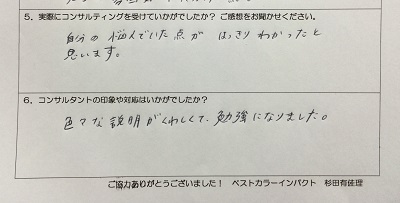 5．実際にコンサルティングを受けていかがでしたか？ ご感想をお聞かせください。
自分の悩んでいた点が はっきりわかったと
思います。
6．コンサルタントの印象や対応はいかがでしたか？
色々な説明がくわしくて、勉強になりました。
ご協力ありがとうございました！ ベストカラーインパクト 杉田有佳理